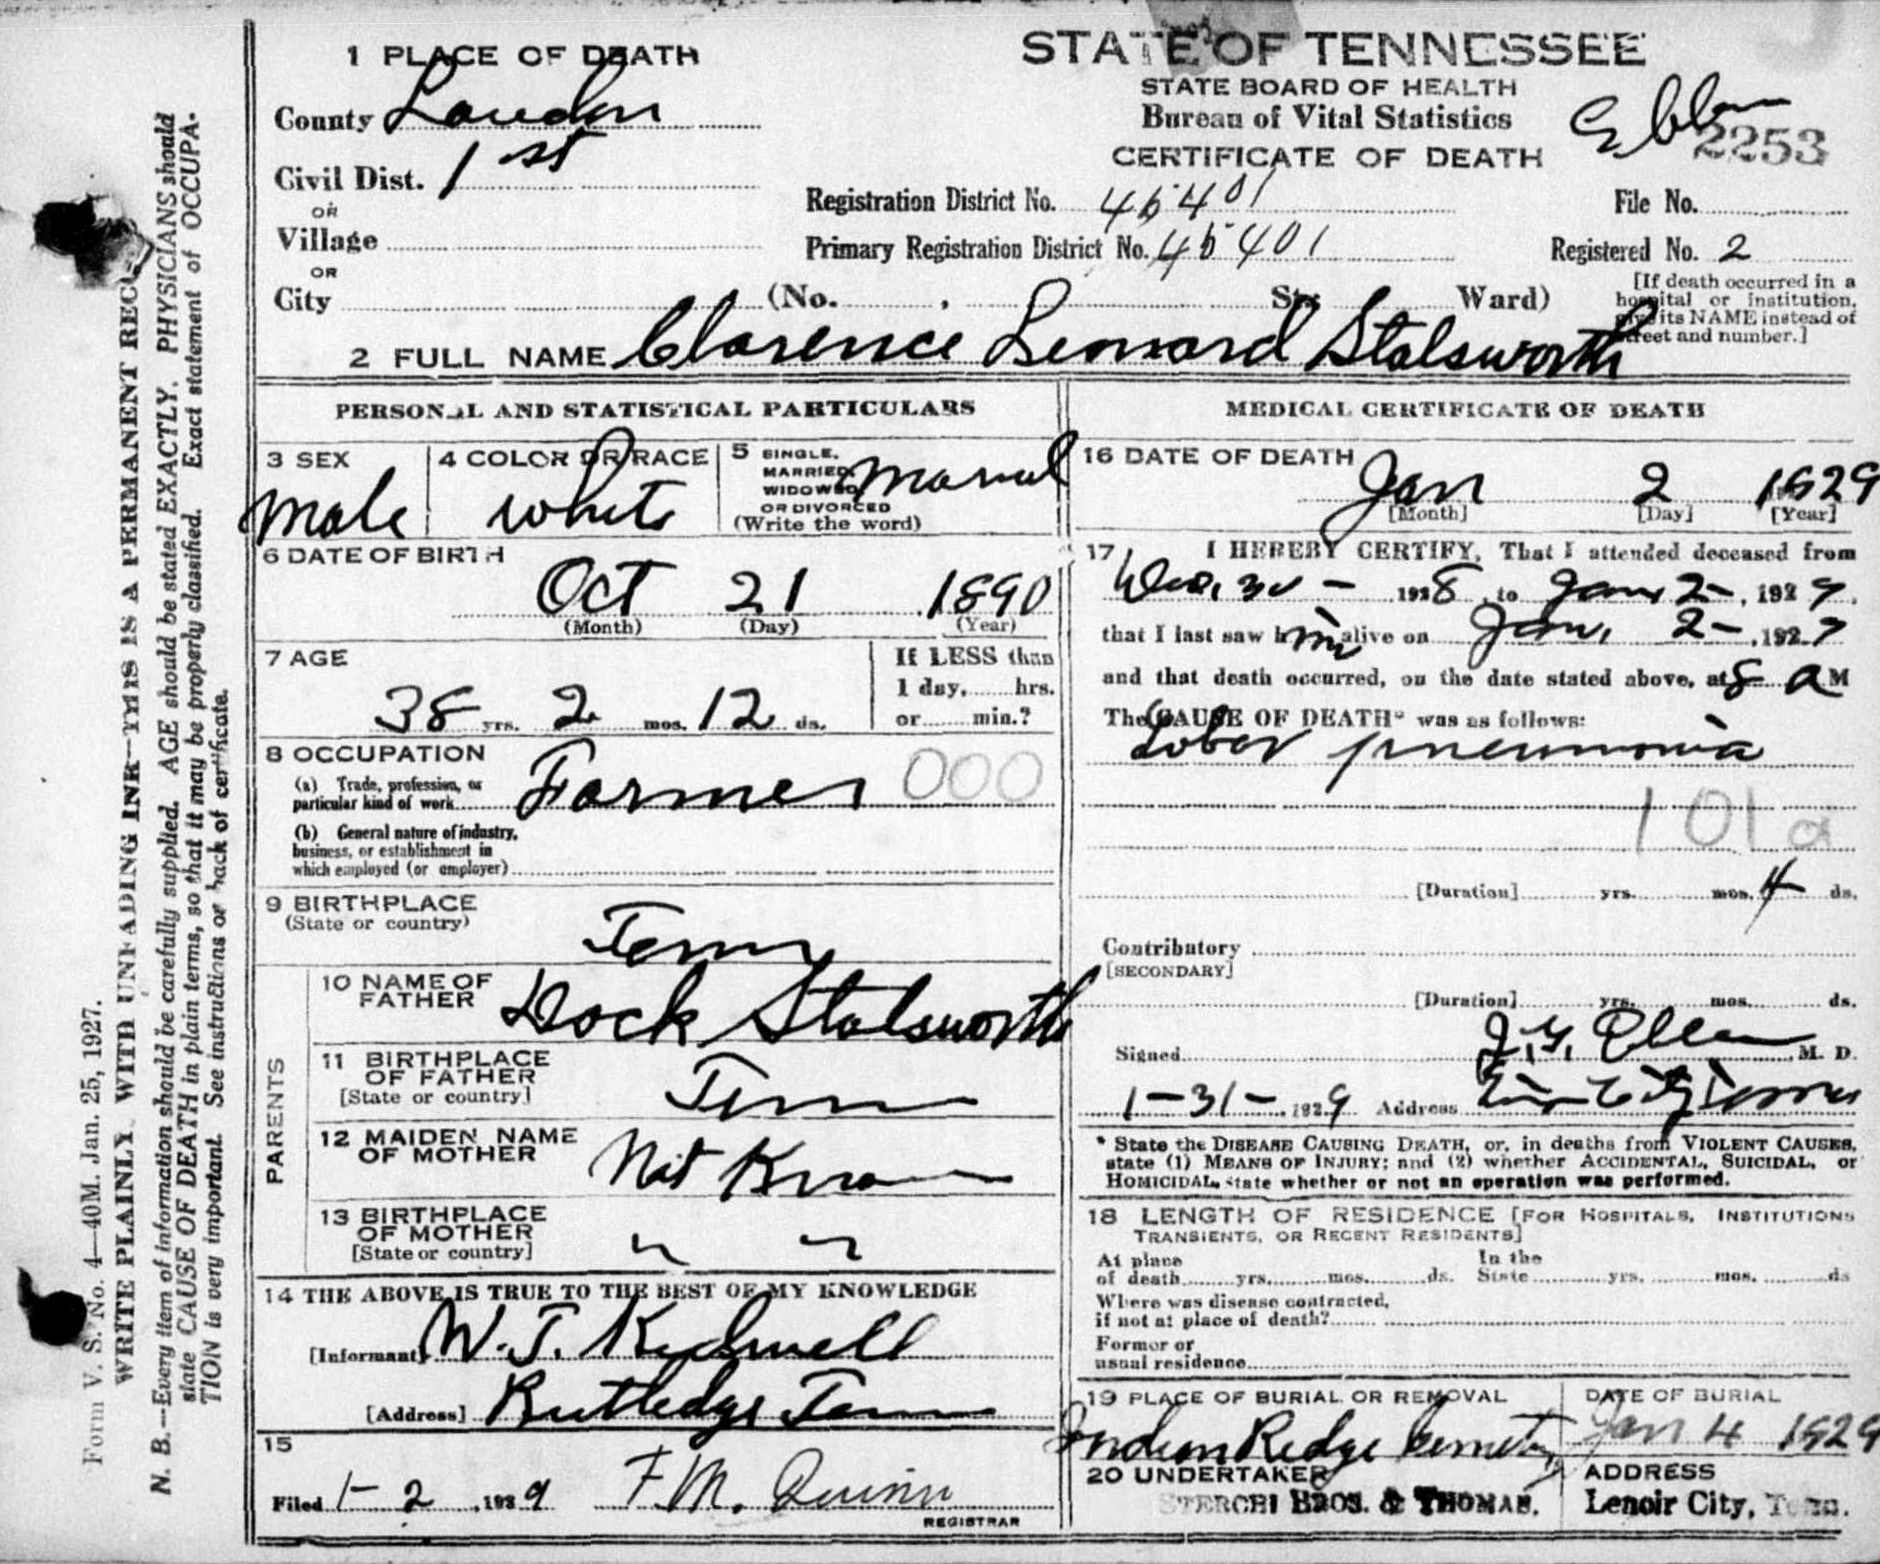 1 PLACE OF DEATH
County Loudon
Civil Dist. 1st
OR
Village
OR
City (No. , St.; Ward)
STATE OF TENNESSEE
STATE BOARD OF HEALTH
Bureau of Vital Statistics
CERTIFICATE OF DEATH
2253
Registration District No. 45401
File No.
Primary Registration District No. 45401
Registered No. 2
[If death occurred in a
hospital or institution,
give its NAME instead of
street and number.]
2 FULL NAME Clarence Leonard Stalsworth
PERSONAL AND STATISTICAL PARTICULARS
3 SEX
Male
4 COLOR OR RACE
White
5 SINGLE,
MARRIED,
WIDOWED
OR DIVORCED
(Write the word)
Married
6 DATE OF BIRTH
Oct 21 1890
(Month) (Day) (Year)
7 AGE
38 yrs. 2 mos. 12 ds.
If LESS than
1 day, hrs.
or min.?
8 OCCUPATION
(a) Trade, profession, or
particular kind of work Farmer 000
(b) General nature of industry,
business, or establishment in
which employed (or employer)
9 BIRTHPLACE
(State or country)
Tenn
PARENTS
10 NAME OF
FATHER Dock Stalsworth
11 BIRTHPLACE
OF FATHER
[State or country]
Tenn
12 MAIDEN NAME
OF MOTHER Not Known
13 BIRTHPLACE
OF MOTHER
[State or country]
" "
14 THE ABOVE IS TRUE TO THE BEST OF MY KNOWLEDGE
[Informant] W. T. Kidwell
[Address] Rutledge Tenn
15
Filed 1-2, 1929 F. M. Quinn
REGISTRAR
MEDICAL CERTIFICATE OF DEATH
16 DATE OF DEATH
Jan 2 1929
[Month] [Day] [Year]
17 I HEREBY CERTIFY, That I attended deceased from
Dec. 30- 1928, to Jan. 2-, 1929,
that I last saw him alive on Jan. 2-, 1929
and that death occurred, on the date stated above, at 8 a M
The CAUSE OF DEATH* was as follows:
Lobar pneumonia
101a
[Duration] yrs. mos. 4 ds.
Contributory
[SECONDARY]
[Duration] yrs. mos. ds.
Signed J. G. M. D.
1-31-, 1929 Address
* State the DISEASE CAUSING DEATH, or, in deaths from VIOLENT CAUSES,
state (1) MEANS OF INJURY; and (2) whether ACCIDENTAL, SUICIDAL, or
HOMICIDAL, state whether or not an operation was performed.
18 LENGTH OF RESIDENCE [FOR HOSPITALS, INSTITUTIONS
TRANSIENTS, OR RECENT RESIDENTS]
At place
of death yrs. mos. ds.
In the
State yrs. mos. ds
Where was disease contracted,
if not at place of death?
Former or
usual residence
19 PLACE OF BURIAL OR REMOVAL
Indian Ridge Cemetery
DATE OF BURIAL
Jan 4 1929
20 UNDERTAKER
STERCHI BROS. & THOMAS.
ADDRESS
Lenoir City, Tenn.
Form V. S. No. 4—40M. Jan. 25, 1927.
WRITE PLAINLY WITH UNFADING INK—THIS IS A PERMANENT RECO
N. B.—Every item of information should be carefully supplied. AGE should be stated EXACTLY. PHYSICIANS should
state CAUSE OF DEATH in plain terms, so that it may be properly classified. Exact statement of OCCUPA-
TION is very important. See instructions or back of certificate.